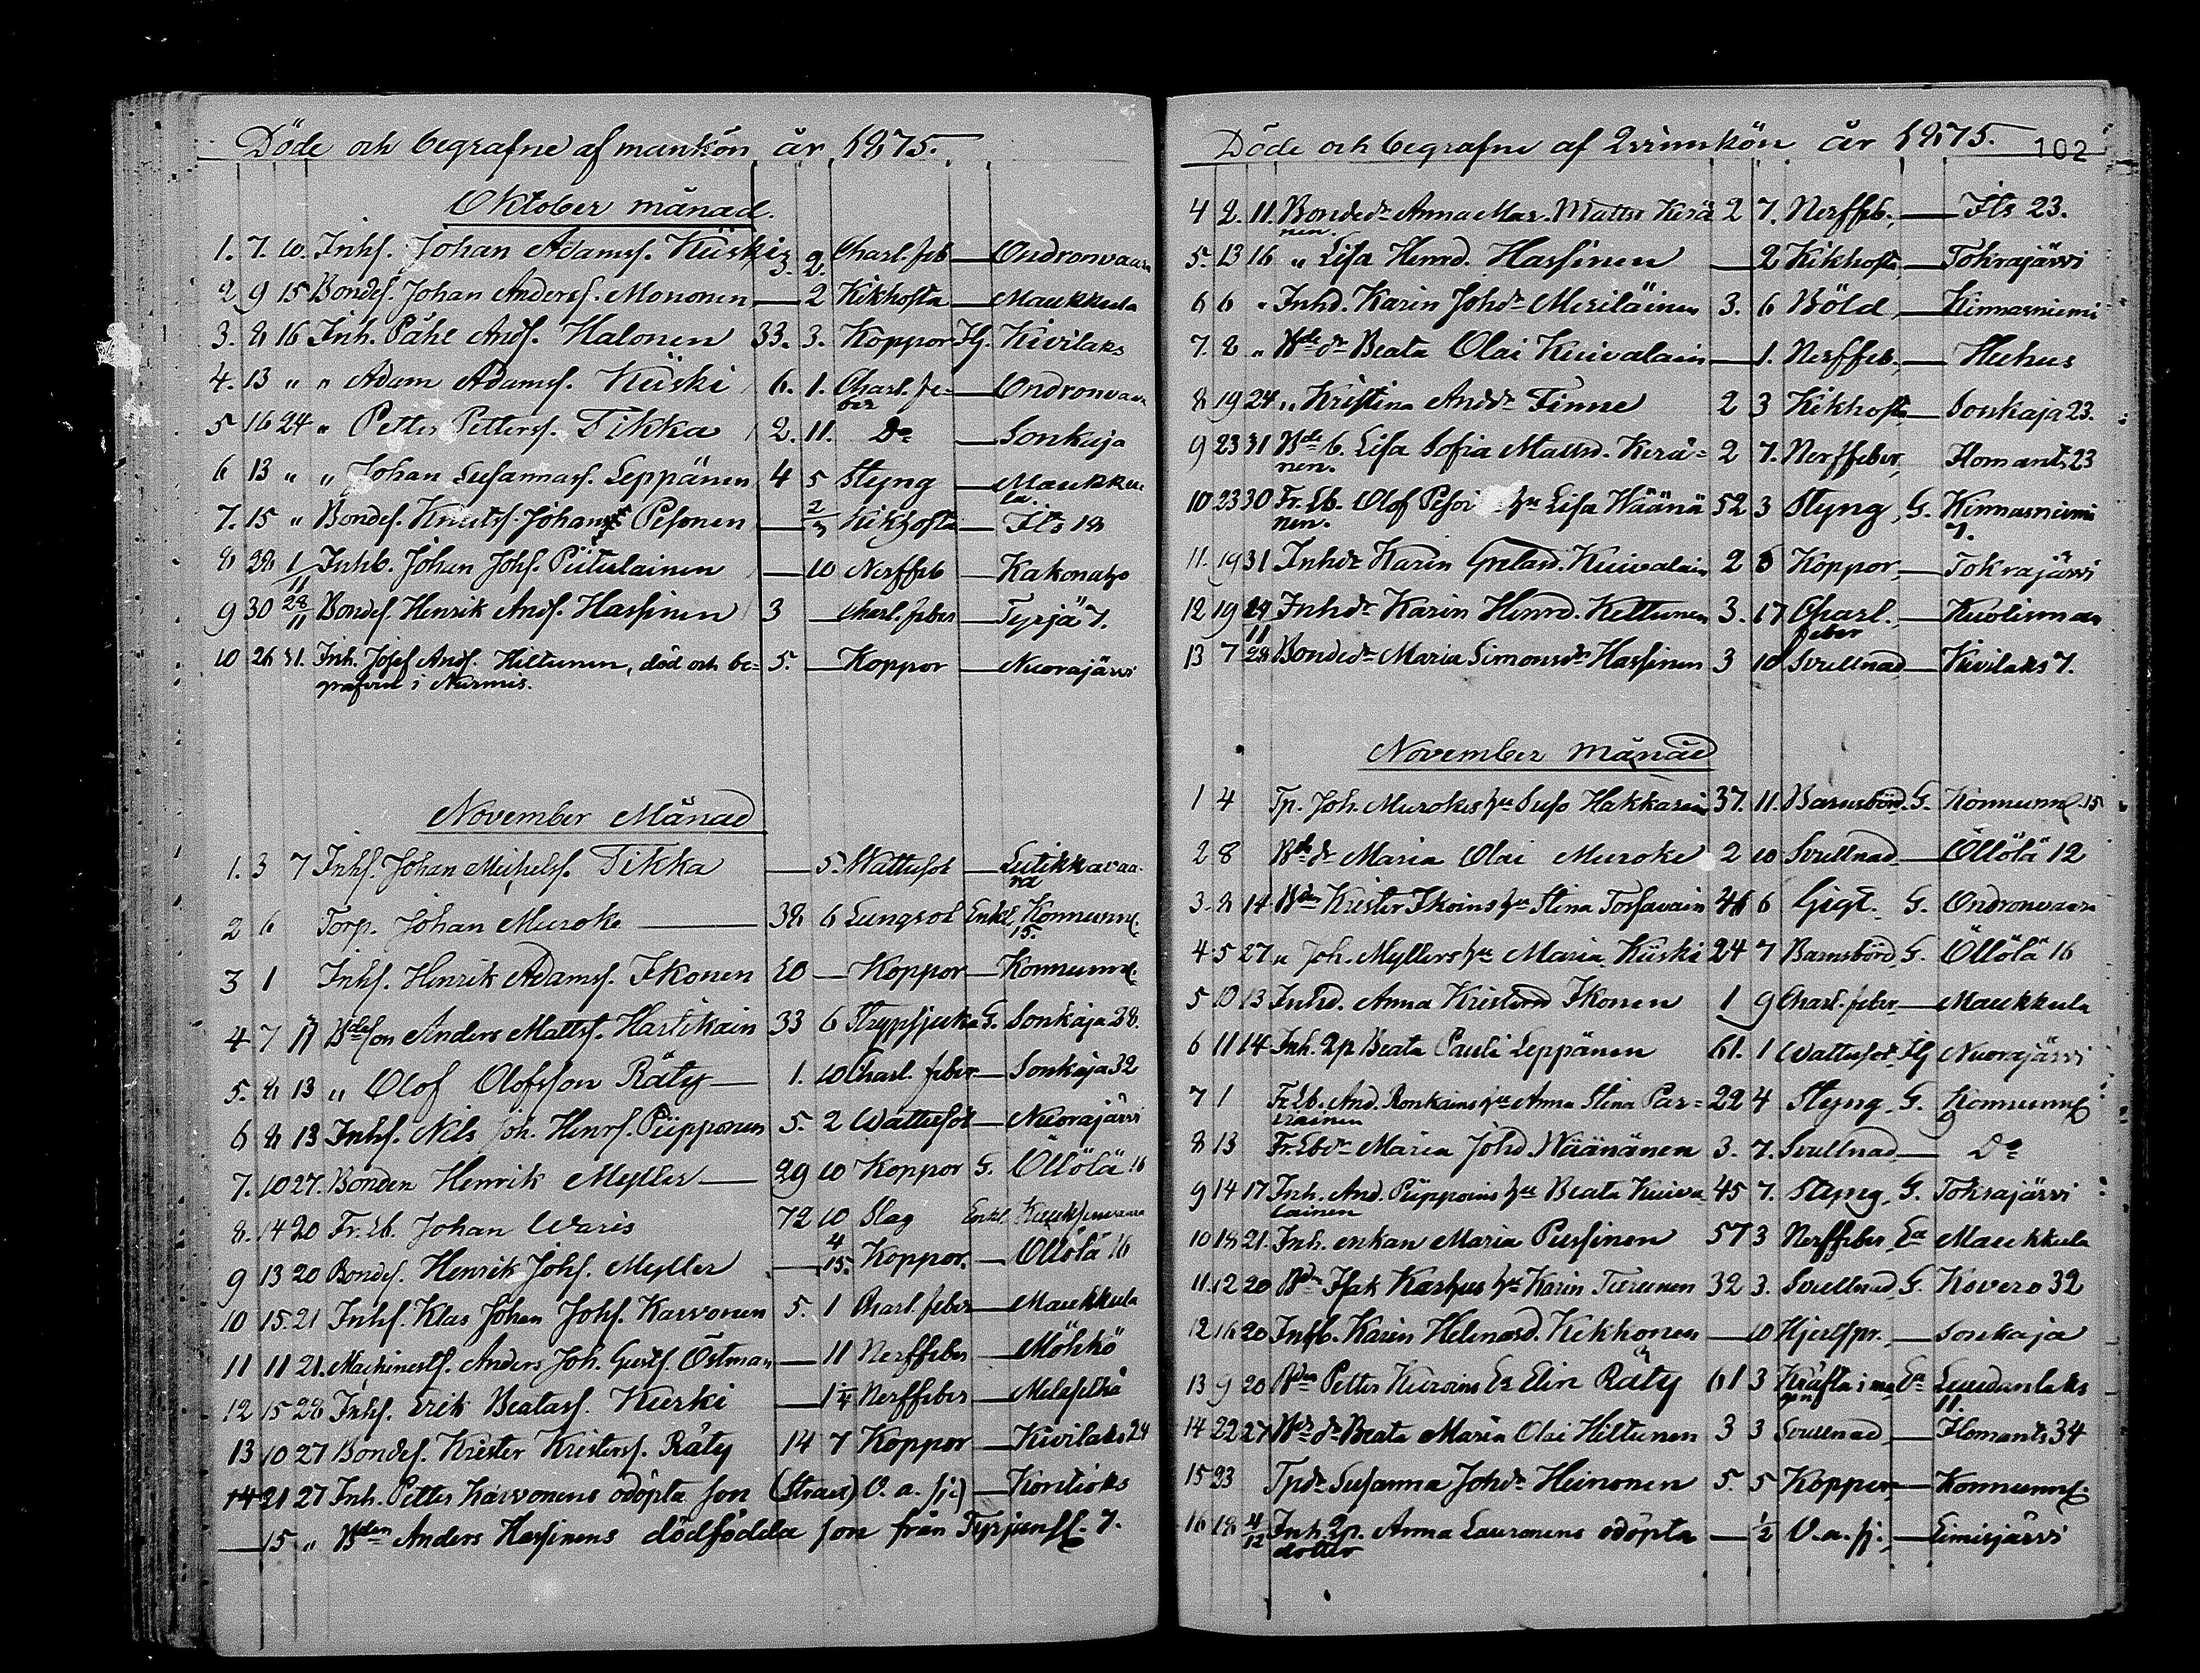 Döde och begrafne af mankön år 1875.
Oktober månad.
1. 7. 10. Inhs. Johan Adamss. Kiiski 3. 2. Charl. feb — Ondronvaara
2 9 15 Bondes. Johan Anderss. Mononen — 2 Kikhosta — Maukkula
3. 8 16 Inh. Påhl Ands. Halonen 33. 3. Koppor Hj. Kivilaks
4. 13 " " Adam Adamss. Kiiski 6. 1. Charl. fe-
ber — Ondronvaar
5 16 24 " Petter Petterss. Tikka 2. 11. Do — Sonkaja
6 13 " " Johan Susannas. Leppänen 4 5 Styng — Maukku
la.
7. 15 " Bondes. Johans Pesonen — 2/3 Kikhosta — Its 18
8 28 1/11 Inhb. Johan Johs. Piitulainen — 10 Nerffeb — Kakonaho
9 30 28/11 Bondes. Henrik Ands. Hassinen 3 — Charl. feber — Tyrjä 7.
10 26 31. Inh. Josef Ands. Hiltunen, död och be- 5. — Koppor — Nuorajärvi
grafven i Nurmis.
November Månad
1. 3 7 Inhs. Johan Michelss. Tikka — 5. Wattusot — Lutikkavaa-
ra
2 6 Torp. Johan Muroke — 38 6 Lungsot Enkl. Konnunn.
15.
3 1 Inhs. Henrik Adamss. Ikonen 10 — Koppor — Konnunn.
4 7 Bdeson Anders Mattss. Hartikain 33 6 Strypsjuka G. Sonkaja 28.
5. 8 13 " Olof Olofsson Räty — 1. 10 Charl. feber — Sonkaja 32
6 8 13 Inhs. Nils Joh. Henrs. Piipponen 5. 2 Wattusot — Nuorajärvi
7. 10 27. Bonden Henrik Myller — 29 10 Koppor G. Öllölä 16
8. 14 20 Fr. Lb. Johan Waris 72 10 Slag Enkl.
9 13 20 Bondes. Henrik Johs. Myller — 4/15. Koppor. — Öllölä 16
10 15. 21 Inhs. Klas Johan Johs. Karvonen 5. 1 Charl. feber — Maukkula
11 11 21. Machinests. Anders Joh. Gusts. Östman — 11 Nerffeber — Möhkö
12 15 28 Inhs. Erik Beatas. Kurki — 1/4 Nerffeber — Melaselkä
13 10 27 Bondes. Krister Kristerss. Räty 14 7 Koppor — Kivilaks 24
14 21 27 Inh. Petter Karvonens odöpta son (Strax) O. a. sj.) — Kontioks
— 15 " Bden Anders Hassinens dödfödda son från Tyrjenss. 7.
Döde och begrafne af Qvinnkön år 1875. 102
4 2. 11. Bondedr Anna Mar. Mattsr Kerä 2 7. Nerffeb. — Its 23.
nen.
5. 13 16 " Lisa Henrd. Hassinen — 2 Kikhosta — Tokrajärvi
6 6 " Inhd. Karin Johdr Meriläinen 3. 6 Böld — Kinnasniemi
7. 8 " Bde dr Beata Olai Kuivalain — 1. Nerffeb. — Huhus
8 19 24 " Kristina Anddr Finne 2 3 Kikhosta — Sonkaja 23.
9 23 31 Bde b. Lisa Sofia Mattsd. Kerä- 2 7. Nerffeber, Ilomants 23
nen.
10 23 30 Fr. Lb. Olof hu Lisa Wäänä 52 3 Styng, G. Kinnasniemi
nen. 7.
11. 19 31 Inhdr Karin Kuivalain 2 8 Koppor, — Tokrajärvi
12 19 24/11 Inhdr Karin Henrd. Kettunen 3. 17 Charl. — Kuolisma
feber
13 7 28 Bondedr Maria Simonsdr Hassinen 3 10 Svullnad — Kivilaks 7.
November Månad
1 4 Tp. Joh. Murokes hu Suso Hakkarain 37. 11. Barnsbörd. G. Konnunn. 15
2 8 Bde dr Maria Olai Muroke 2 10 Svullnad — Öllölä 12
3. 8 14 Bden Krister Ikoins hu Stina Torfavain 46 6 Gigt. G. Ondronvaara
4. 5 27 " Joh. Myllers hu Maria Kiiski 24 7 Barnsbörd. G. Öllölä 16
5 10 13 Inhd. Anna Kristersd Ikonen 1 9 Charl. feber — Maukkula
6 11 14 Inh. Qp Beata Pauli Leppänen 61. 1 Wattusot Hj Nuorajärvi
7 1 Fr. Lb. And. Ronkains hu Anna Stina Par- 22 4 Styng. G. Konnunn
viainen 9
8 13 Fr. Lb dr Maria Johd. Wäänänen 3. 7. Svullnad — Do
9 14 17 Inh. And. Piippoins hu Beata Kuiva 45 7. Styng. G. Tokrajärvi
lainen
10 18 21. Inh. enkan Maria Pussinen 57 3 Nerffeber Ea Maukkula
11. 12 20 Bden Isak Karhus hu Karin Turunen 32 3. Svullnad, G. Kovero 32
12 16 20 Inhb. Karin Helenasd. Kekkonen — 10 Hjertspr. — Sonkaja
13 9 20 Bden Petter Kuroins Ea Elin Räty 61 3 Kräfta i ma Ea Luudanlaks
gen 11.
14 22 27 Bde dr Beata Maria Olai Hiltunen 3 3 Svullnad — Ilomants 34
15 23 Tpdr Susanna Johdr Heinonen 5. 5 Koppor — Konnunn.
16 18 4/12 Inh. Qp. Anna Lauronens odöpta — 1/2 O. a. sj. — Eimisjärvi
dotter